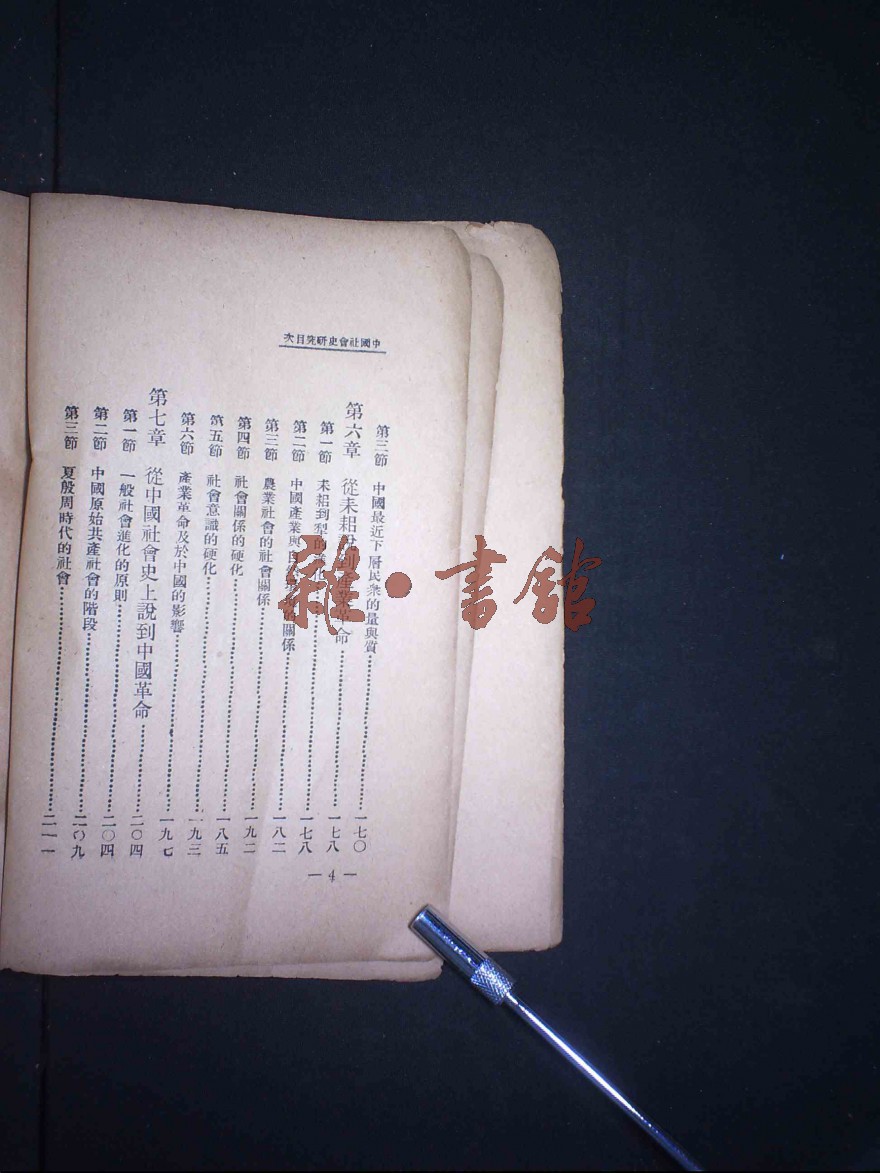 中國社會史研究目次
第三節 中國最近下層民衆的量與質……一七〇
第六章 從耒耜說到產業革命……一七八
第一節 耒耜到犁的進化……一七八
第二節 中國產業與自 的關係……一八二
第三節 農業社會的社會關係……一九二
第四節 社會關係的硬化……一八五
第五節 社會意識的硬化……一九三
第六節 產業革命及於中國的影響……一九七
第七章 從中國社會史上說到中國革命……二〇四
第一節 一般社會進化的原則……二〇四
第二節 中國原始共產社會的階段……二〇九
第三節 夏殷周時代的社會……二一一
— 4 —
雜·書館